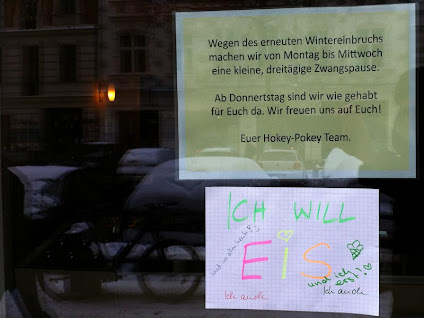 Wegen des erneuten Wintereinbruchs
machen wir von Montag bis Mittwoch
eine kleine, dreitägige Zwangspause.
Ab Donnerstag sind wir wie gehabt
für Euch da. Wir freuen uns auf Euch!
Euer Hokey-Pokey Team.
ICH WILL
EiS
und ich
erst!
Ich auch
Ich auch